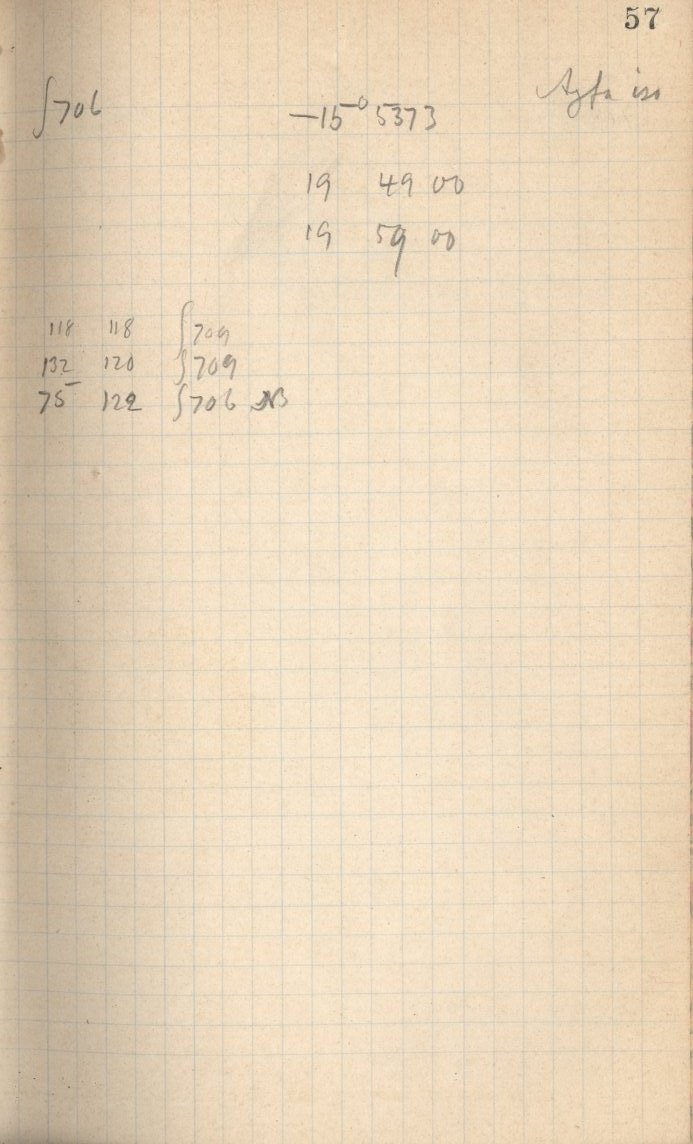 57
∫706 -15° 5373 Agfa iso
19 49 00
19 59 00
118 118 ∫709
132 120 ∫709
75 122 ∫706 NB